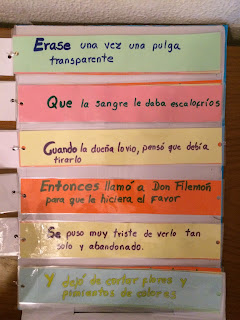 Erase una vez una pulga
transparente
Que la sangre le daba escalofríos
Cuando la dueña lo vio, pensó que debía
tirarlo
Entonces llamó a Don Filemón
para que le hiciera el favor
Se puso muy triste de verlo tan
solo y abandonado.
Y dejó de cortar flores y
pimientos de colores